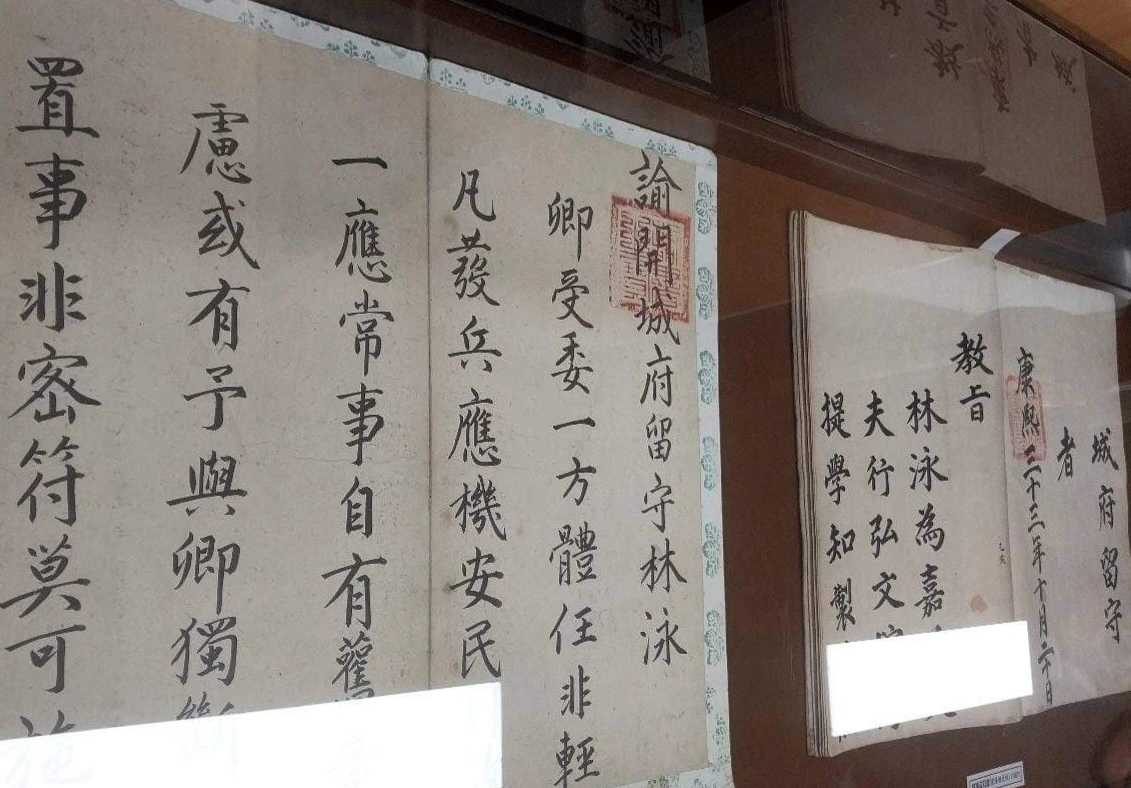 諭開城府留守林泳
卿受委一方體任非輕
凡發兵應機安民
一應常事自有舊
慮或有予與卿獨斷
置事非密符莫可施
城府留守
者
康熙三十三年十月六日
教旨
乙亥
林泳為嘉
夫行弘文
提學知製